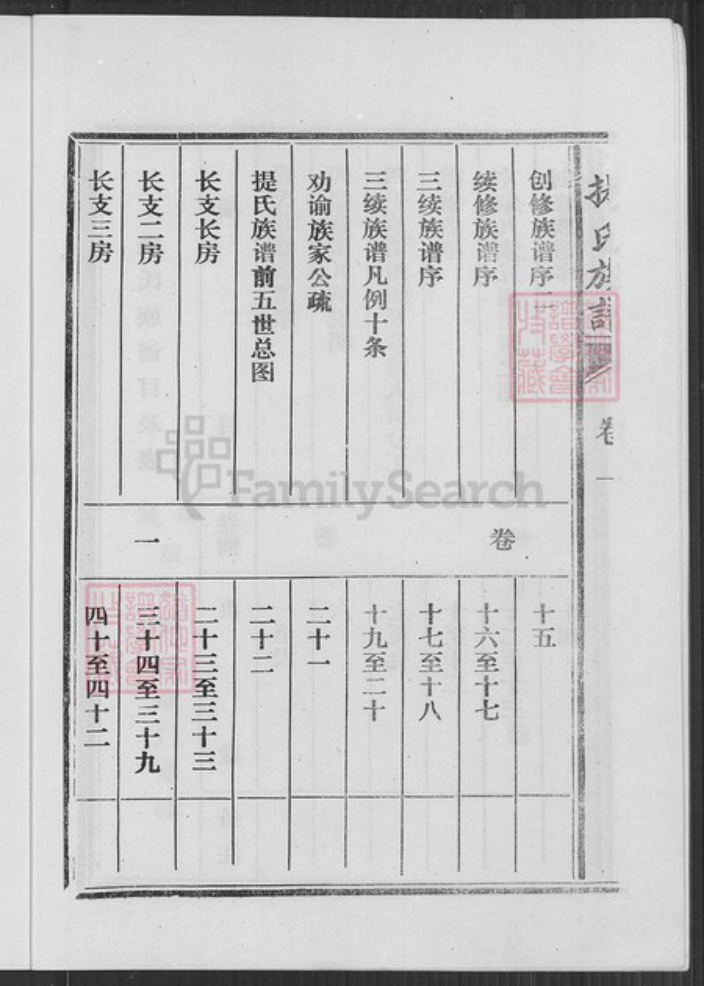 提氏族谱
卷一
创修族谱序二
续修族谱序
三续族谱序
三续族谱凡例十条
劝谕族家公疏
提氏族谱前五世总图
长支长房
长支二房
长支三房
卷
一
十五
十六至十七
十七至十八
十九至二十
二十一
二十二
二十三至三十三
三十四至三十九
四十至四十二
FamilySearch